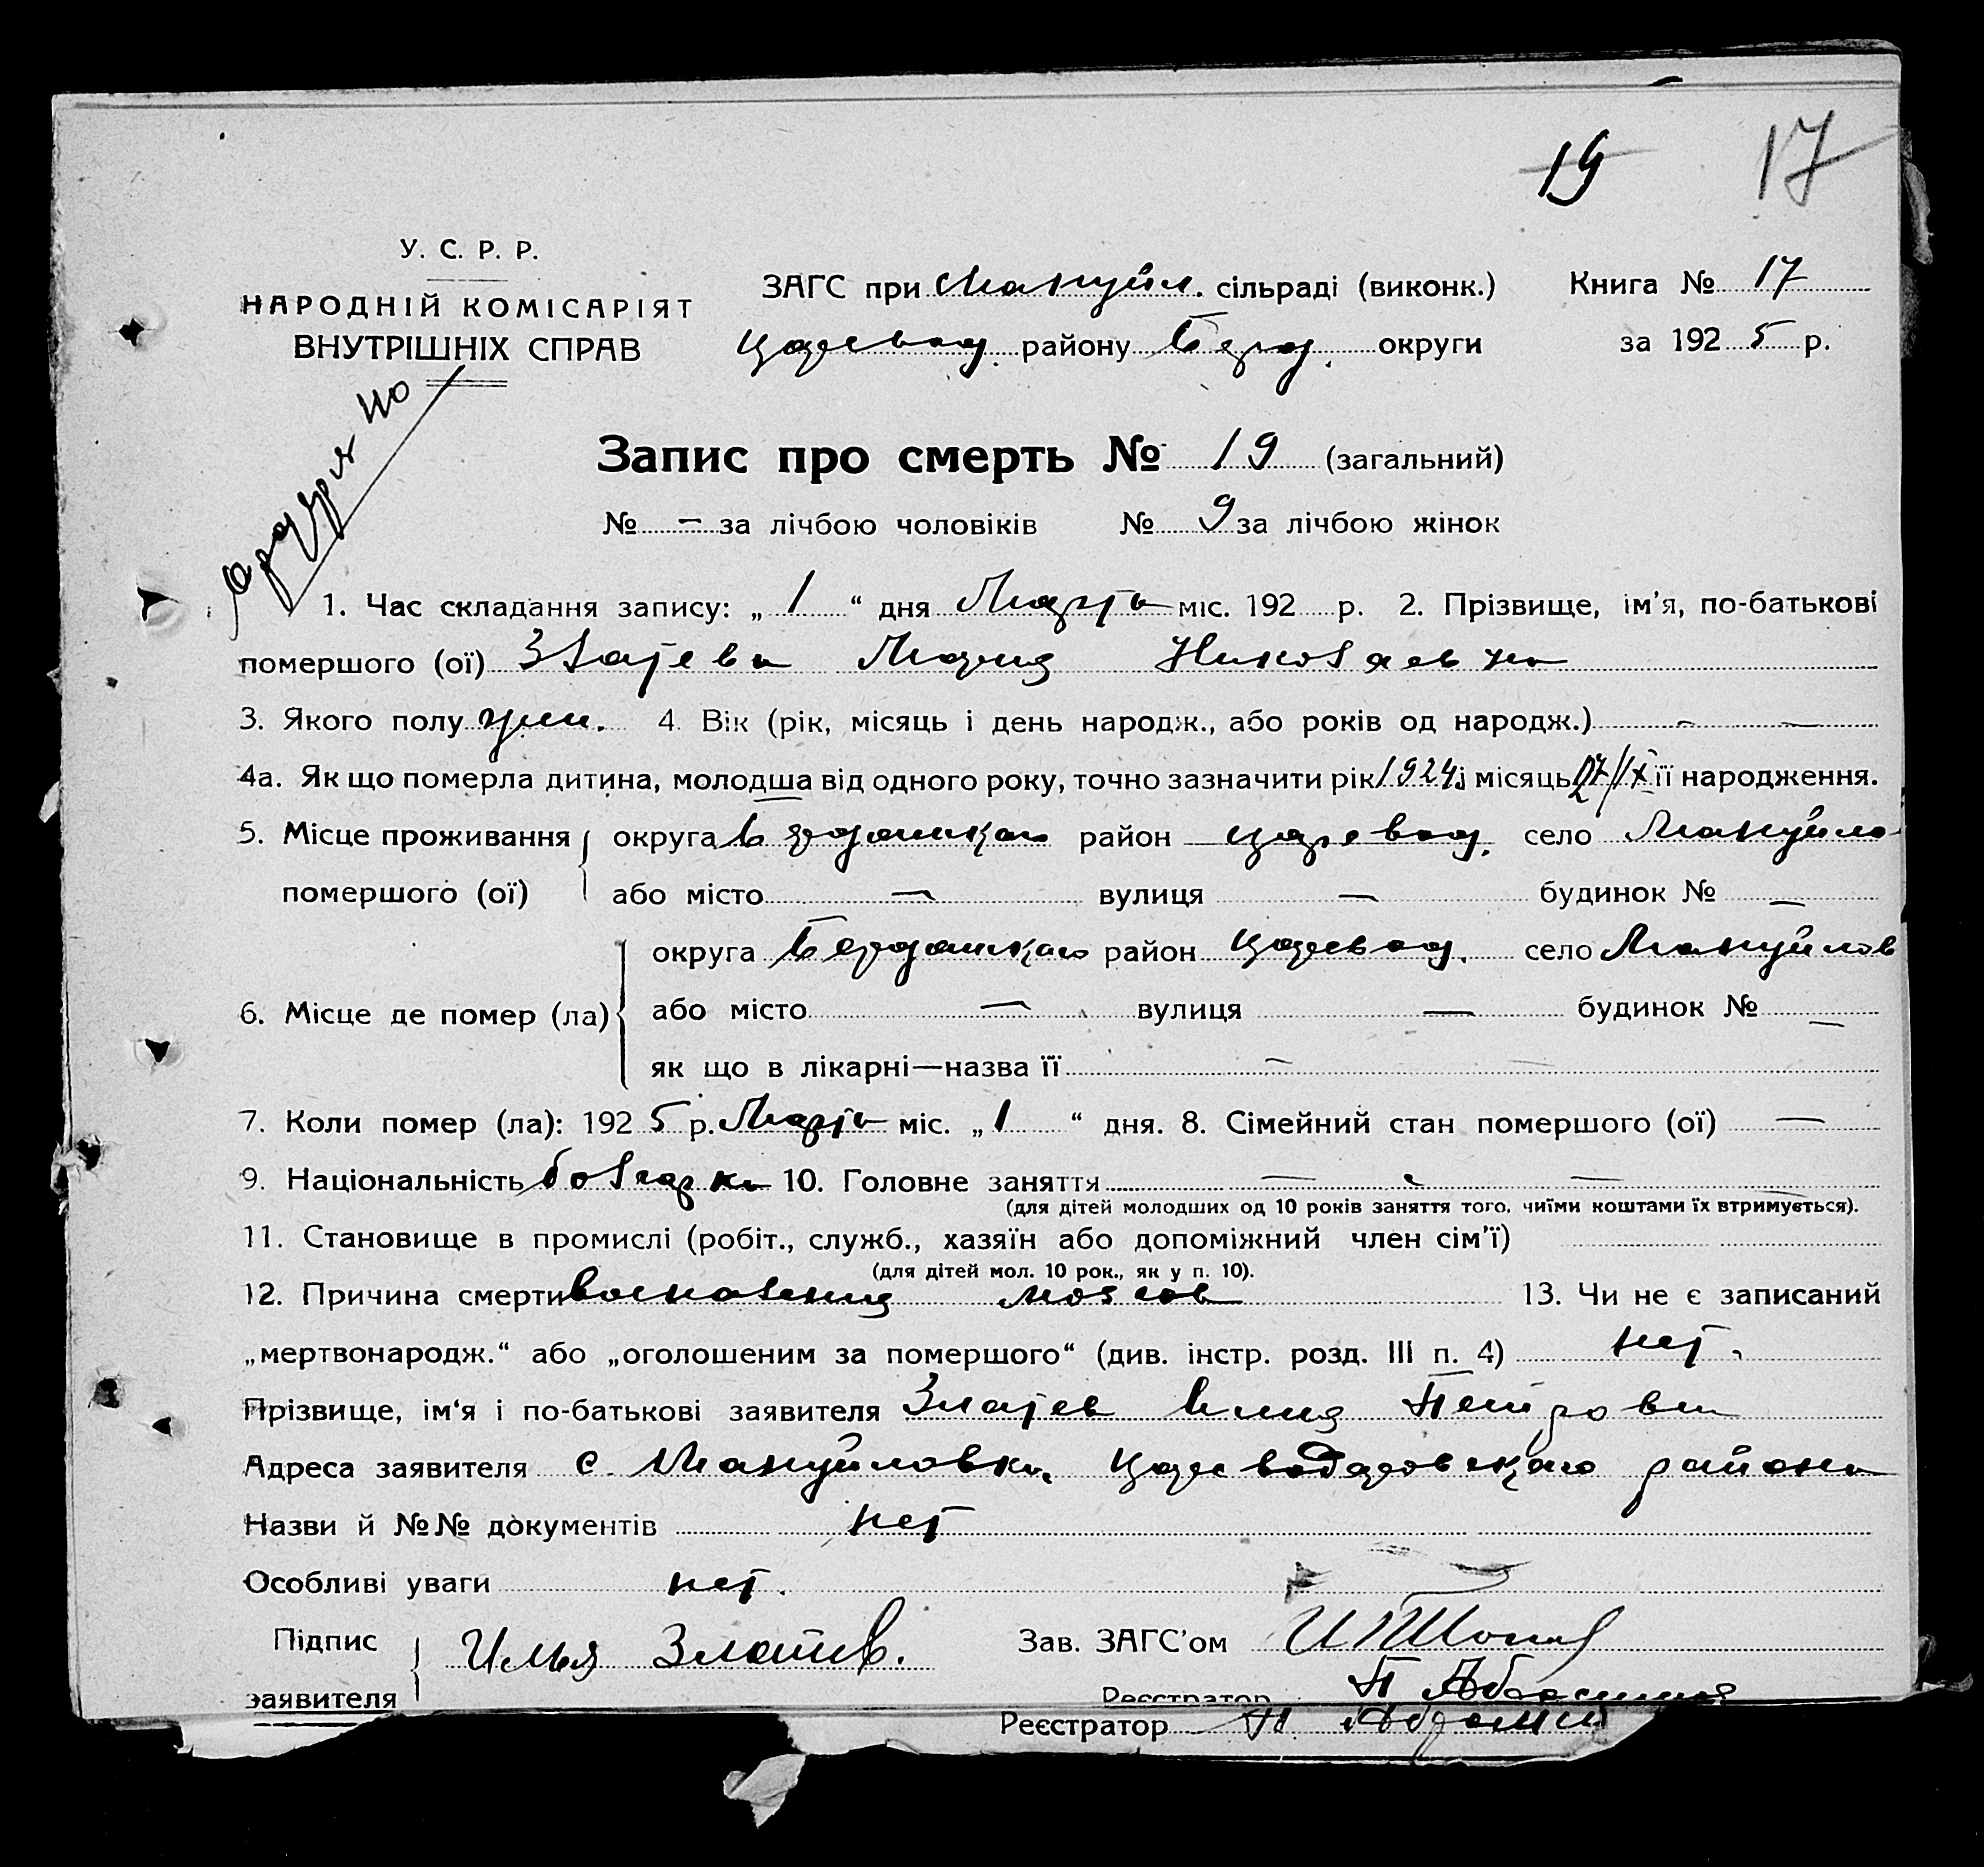 19 17
У. С. Р. Р.
НАРОДНІЙ КОМІСАРІЯТ
ВНУТРІШНІХ СПРАВ
ЗАГС при Мануйл. сільраді (виконк.) Книга № 17
Царевод. району Берд. округи за 1925 р.
Запис про смерть № 19 (загальний)
№ — за лічбою чоловіків № 9 за лічбою жінок
1. Час складання запису: „ 1 “ дня Марта міс. 192 р. 2. Прізвище, ім’я, по-батькові
помершого (ої) Златева Мария Николаевна
3. Якого полу жен. 4. Вік (рік, місяць і день народж., або років од народж.) — —
4а. Як що померла дитина, молодша від одного року, точно зазначити рік 1924 і місяць 27/IX її народження.
5. Місце проживання округа Бердянскаго район Царевод. село Мануйло-
помершого (ої) або місто — вулиця — будинок № —
округа Бердянскаго район Царевод. село Мануйлов
6. Місце де помер (ла) або місто — вулиця — будинок № —
як що в лікарні—назва її —
7. Коли помер (ла): 1925 р. Марта міс. „ 1 “ дня. 8. Сімейний стан помершого (ої) —
9. Національність болгарка 10. Головне заняття — —
(для дітей молодших од 10 років заняття того, чиїми коштами їх втримується).
11. Становище в промислі (робіт., служб., хазяїн або допоміжний член сім’ї)
(для дітей мол. 10 рок., як у п. 10).
12. Причина смерти воспаления мозгов 13. Чи не є записаний
„мертвонародж.“ або „оголошеним за помершого“ (див. інстр. розд. III п. 4) нет.
Прізвище, ім‘я і по-батькові заявителя Златев Илия Петрович
Адреса заявителя с. Мануйловка, Царевододаровскаго района
Назви й №№ документів нет
Особливі уваги нет.
Підпис Илья Златев. Зав. ЗАГС’ом
заявителя Реєстратор П
Реєстратор П